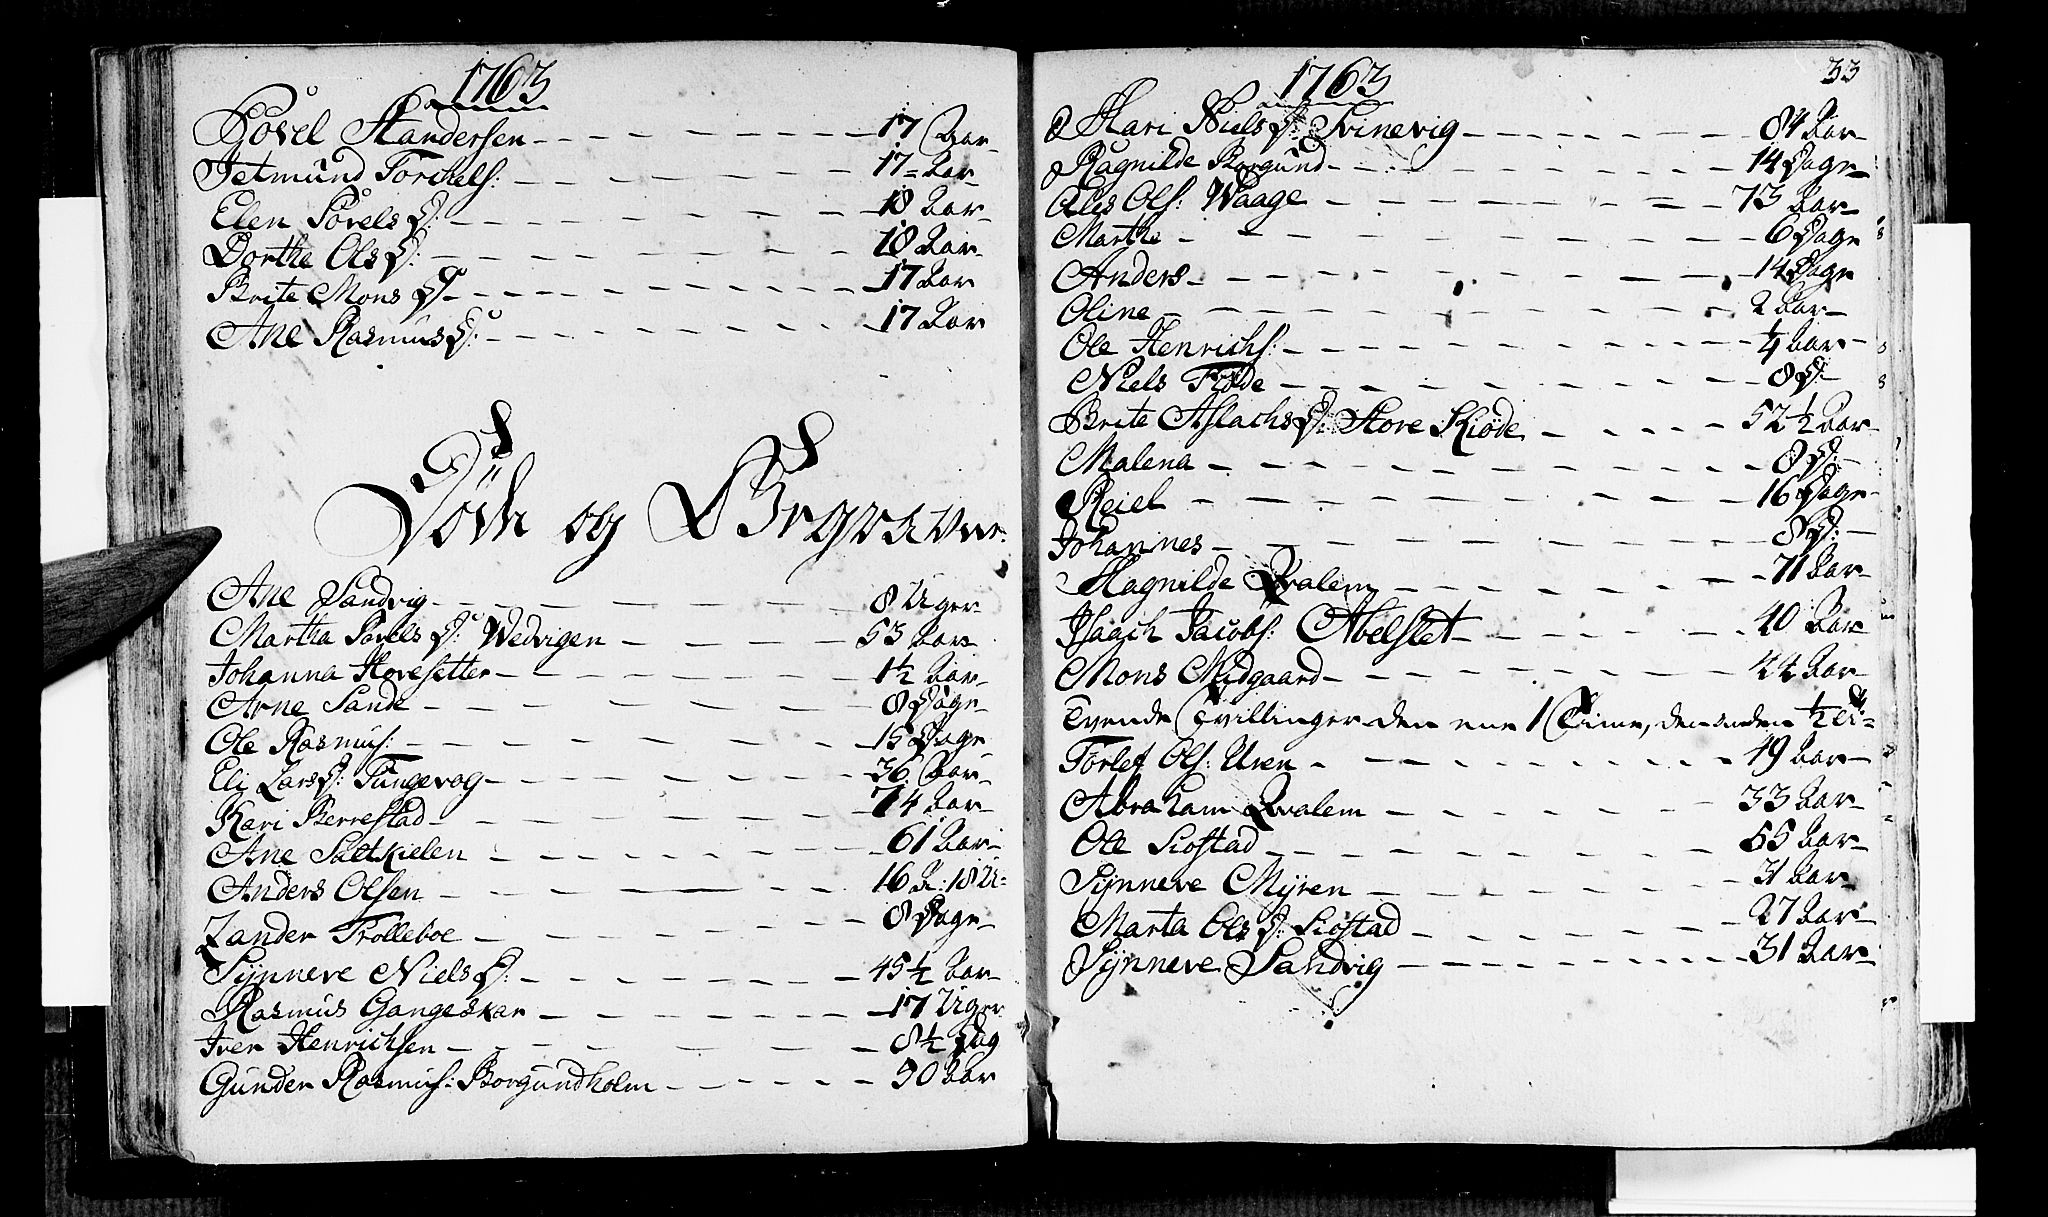 1763
Sövel Standersen 17 Aar
Jetmund Torchels: 17 Aar
Elen Sövels D: 18 Aar
Dorthe Ols D: 18 Aar
Brite Mons D 17 Aar
Ane Rasmus D: 17 Aar
Döde og Begravne:
Ane Sandvig 8 Uger
Martha Povels D: Wedvigen 53 Aar
Johanna Hovesetter 1½ Aar
Arne Sande 8 Dage
Ole Rasmus: 15 Dage
Eli Lars D: Tungevog 36 Aar
Kari Berrestad 74 Aar
Ane Saltkielen 61 Aar
Anders Olsen 16 A: 18 U:
Zander Trolleboe 8 Dage
Synneve Niels D: 45½ Aar
Rasmus Gangeskar 17 Uger
Iver Henrichsen 8½ Dag
Gunder Rasmus: Borgundholm 50 Aar
1763
33
Kari Niels D: Svinevig 84 Aar
Ragnilde Borgund 14 Dage
Ales Ols: Waage 73 Aar
Marthe 6 Dage
Anders 14 Dage
Oline 2 Aar
Ole Henrichs: ¼ Aar
Niels Fiöde 8 D:
Brite Aslachs D: Store Kiöde 52½ Aar
Malena 8 D:
Reiel 16 Dage
Johannes 8 D:
Magnilde Qvalem 71 Aar
Isaach Jacobs: Abelset 40 Aar
Mons Midgaard 44 Aar
Tvende Tvillinger den ene 1 Time, den anden ½
Torlef Ols: Uren 49 Aar
Abraham Qvalem 33 Aar
Ole Siöstad 55 Aar
Synneve Myren 31 Aar
Marta Ols D: Siöstad 27 Aar
Synneve Sandvig 31 Aar